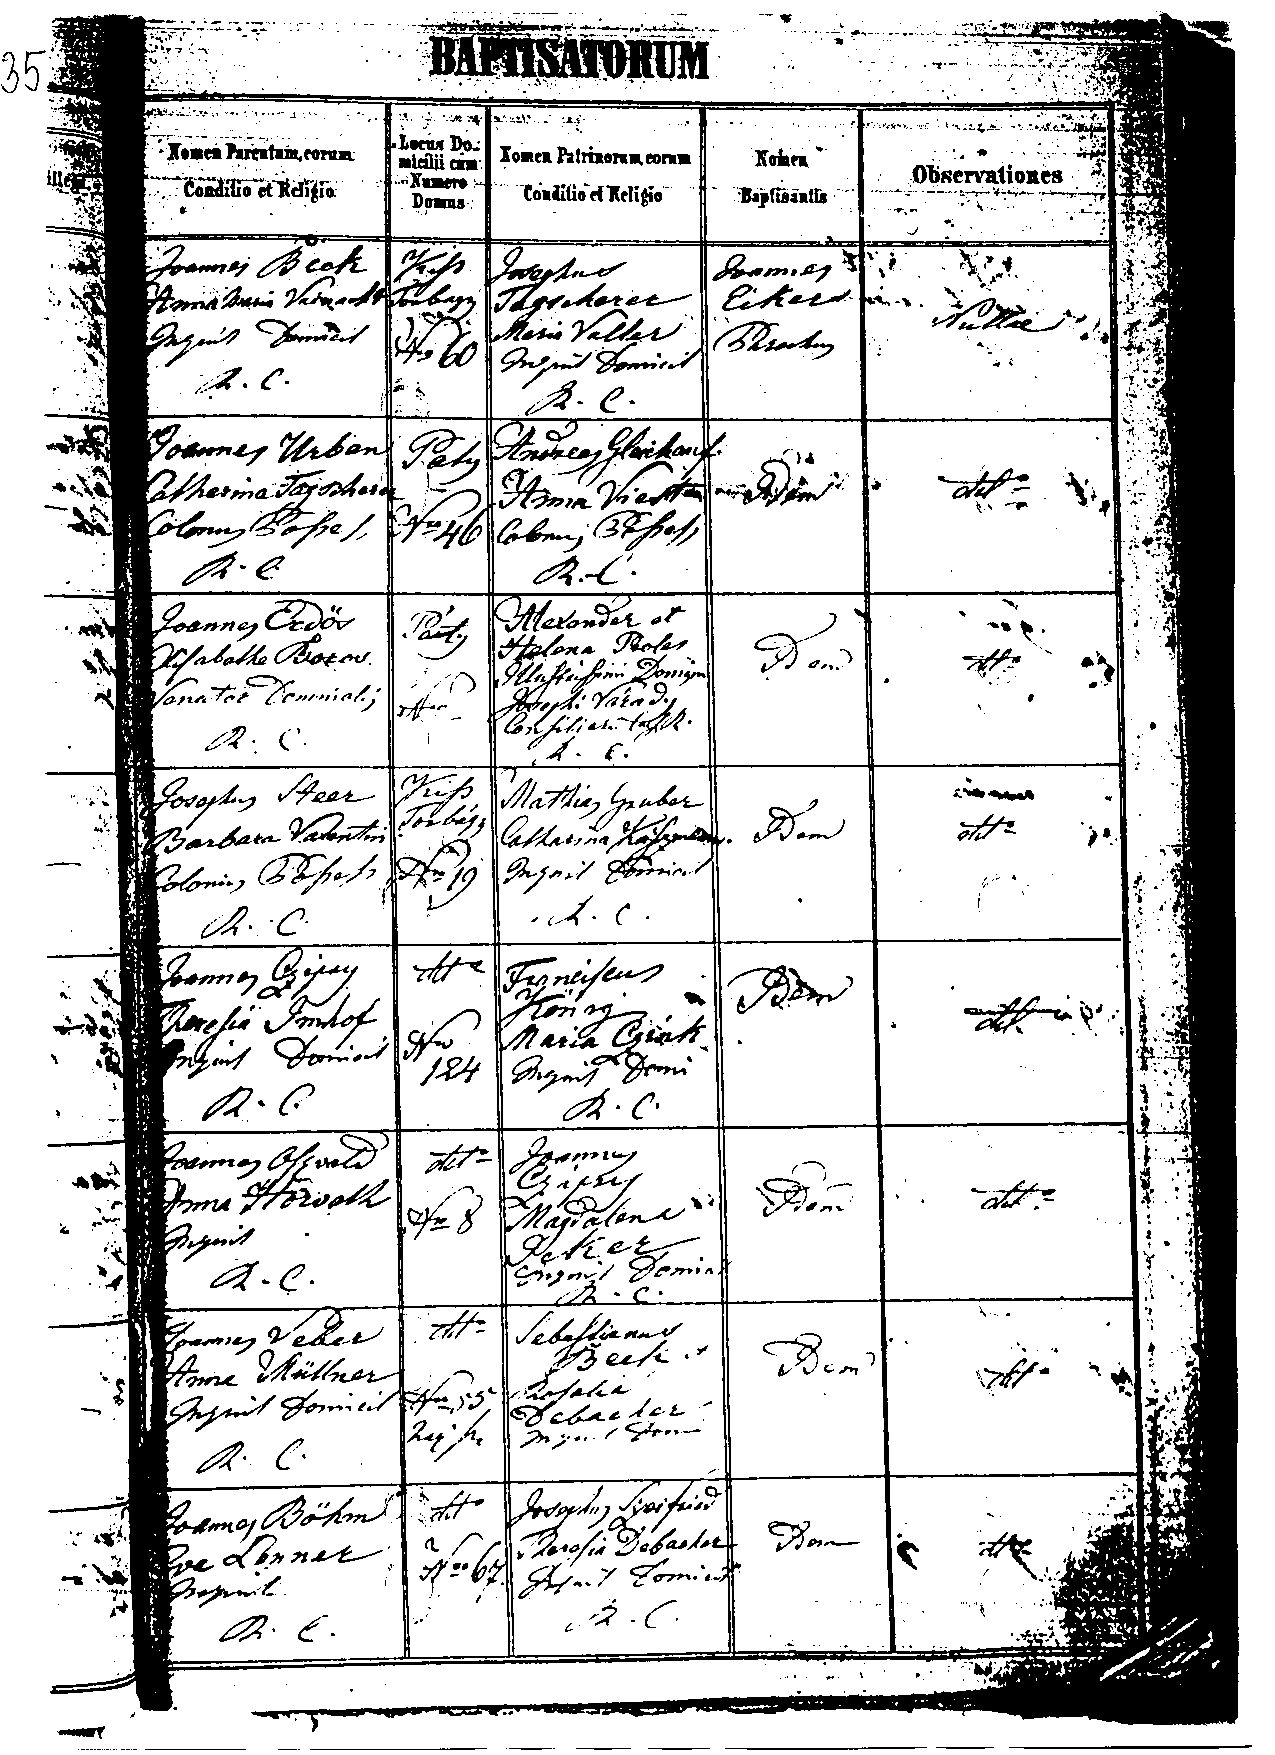 35
BAPTISATORUM
Nomen Parentum, eorum
Conditio et Religio
Locus Do-
micilii cum
Numero
Domus
Nomen Patrinorum, eorum
Conditio et Religio
Nomen
Baptisantis
Observationes
Joannes Beck
Anna Maria
Inquil Domicil
R. C.
Kiss
Torbágy
Nro 60
Josephus
Tagscherer
Maria Valler
Inquil Domicil
R. C.
Joannes
Eikers
Parochus
Nullae
Joannes Urban
Catharina Tagscherer
Colonus Possess
R. C.
Páty
Nro 46
Andreas
Anna
Colonus Possess
R. C.
Idem
dtto
Joannes Erdős
Elisabetha
Venator Dominalis
R. C.
Páty
Nro
Alexander et
Helena
Illustrissimi Domini
Josephi Várady
R. C.
Idem
dtto
Josephus Steer
Barbara Valentin
Colonus Possess
R. C.
Kiss
Torbágy
Nro 19
Mathias Gruber
Catharina
Inquil Domicil
R. C.
Idem
dtto
Joannes Czipsy
Theresia Imhof
Inquil Domicil
R. C.
dtto
Nro
124
Franciscus
König
Maria Czink
Inquil Domi
R. C.
Idem
dtto
Joannes Oszvald
Anna Horvath
Inquil
R. C.
dtto
Nro 8
Joannes
Czipsy
Magdalena
Peker
Inquil Domicil
R. C.
Idem
dtto
Joannes Veber
Anna Müllner
Inquil Domicil
R. C.
dtto
Nro 55
Sebastianus
Beck
Rosalia
Debacker
Inquil Dom
Idem
dtto
Joannes Böhm
Eva Lenner
Inquil
R. C.
dtto
Nro 67
Josephus Szeifried
Theresia Debacker
Inquil Domicil
R. C.
Idem
dtto